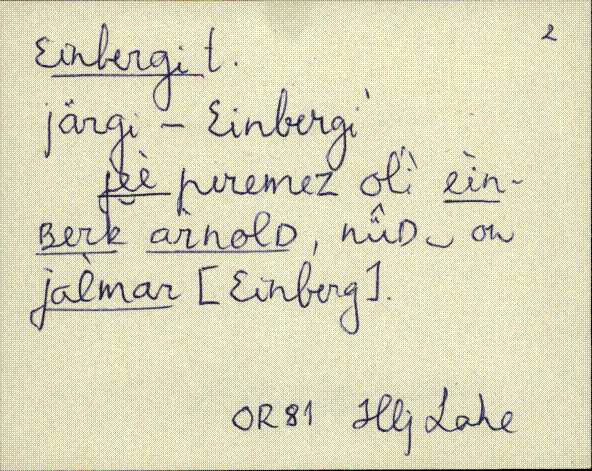 2
Einbergi t.
järgi – Einbergi
jèè peremez olì èin-
BerK àrnolD, nǘD on
jàlmar [Einberg].
OR 81 Hlj Lahe